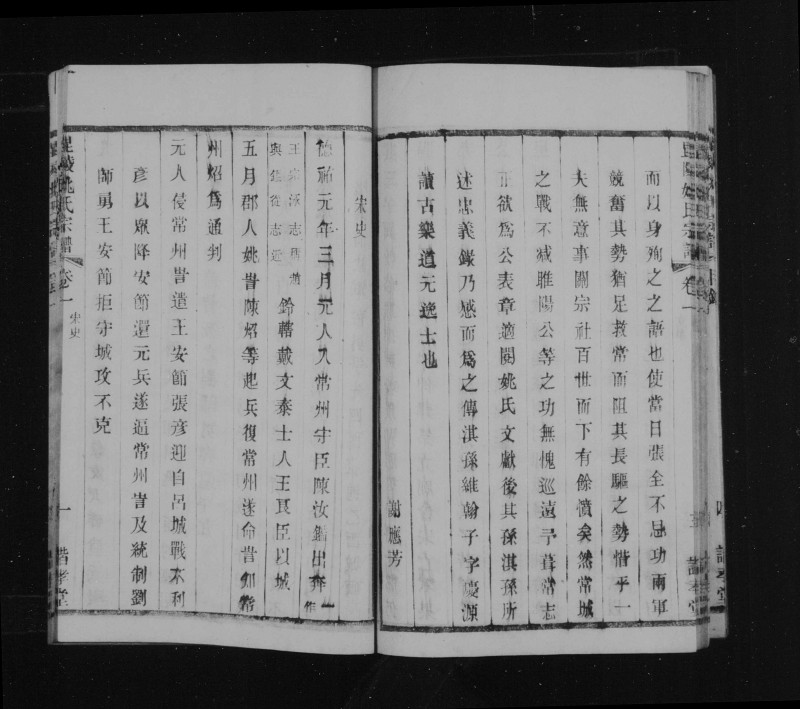 而以身殉之之語也使當日張全不忌功兩軍
競奮其勢猶足救常而阻其長驅之勢惜乎一
夫無意事關宗社百世而下有餘憤矣然常城
之戰不減睢陽公等之功無愧巡遠予葺常志
正欲為公表章適閱姚氏文獻後其孫淇孫所
述忠義錄乃感而為之傳淇孫維翰子字慶源
讀古樂道元逸士也
謝應芳
宋史
德祐元年三月元人入常州守臣陳汝鑑出奔一作
王宗洙志所載
與鑑從志近
鈐轄戴文泰士人王良臣以城
五月郡人姚訔陳炤等起兵復常州遂命訔知常
州炤為通判
元人侵常州訔遣王安節張彥迎自呂城戰不利
彥以眾降安節還元兵遂逼常州訔及統制劉
師勇王安節拒守城攻不克
毘陵姚氏宗譜
卷一
宋史
一
諧孝堂